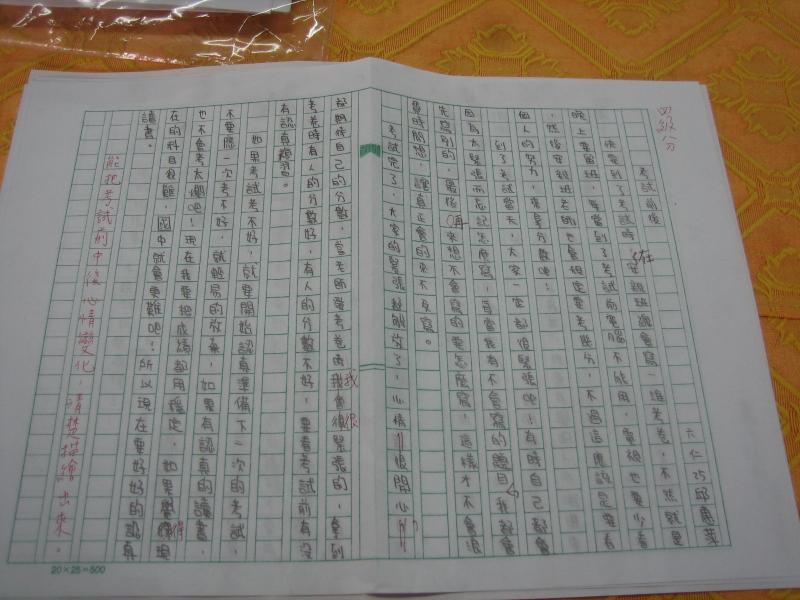 四級分
考試前後
六仁25邱
快要到了考試時,在安親班還會寫一
晚上要留班,每當到了考試前電腦不能用,電視也要少看
,然後安親班老師也會規定要考幾分,不過這應該是要看
個人的努力,來拿分數吧!
到了考試當天,大家一定都很緊張吧!有時自己都會
因為太緊張而忘記怎麼寫,每當我有不會寫的題目,我都會
先寫別的,最後再來想不會寫的要怎麼寫,這樣才不會浪
費時間想,讓真正會的來不及寫。
考試完了,大家的緊張都解放了,心情很開心
都期待自己的分數,當老師發考卷時我會很緊張的,拿到
考卷時有人的分數好,有人的分數不好,要看考試前有沒
有認真複習。
如果考試考不好,就要開始認真準備下一次的考試,
不要應一次考不好,就輕易的放棄,如果有認真的讀書,
也不會考太爛吧!現在我要把成績都用穩定,如果覺得現
在的科目很難,國中就會更難吧!所以現在要好好的認真
讀書。
能把考試前中後心情變化,清楚描繪出來。
20×25=500